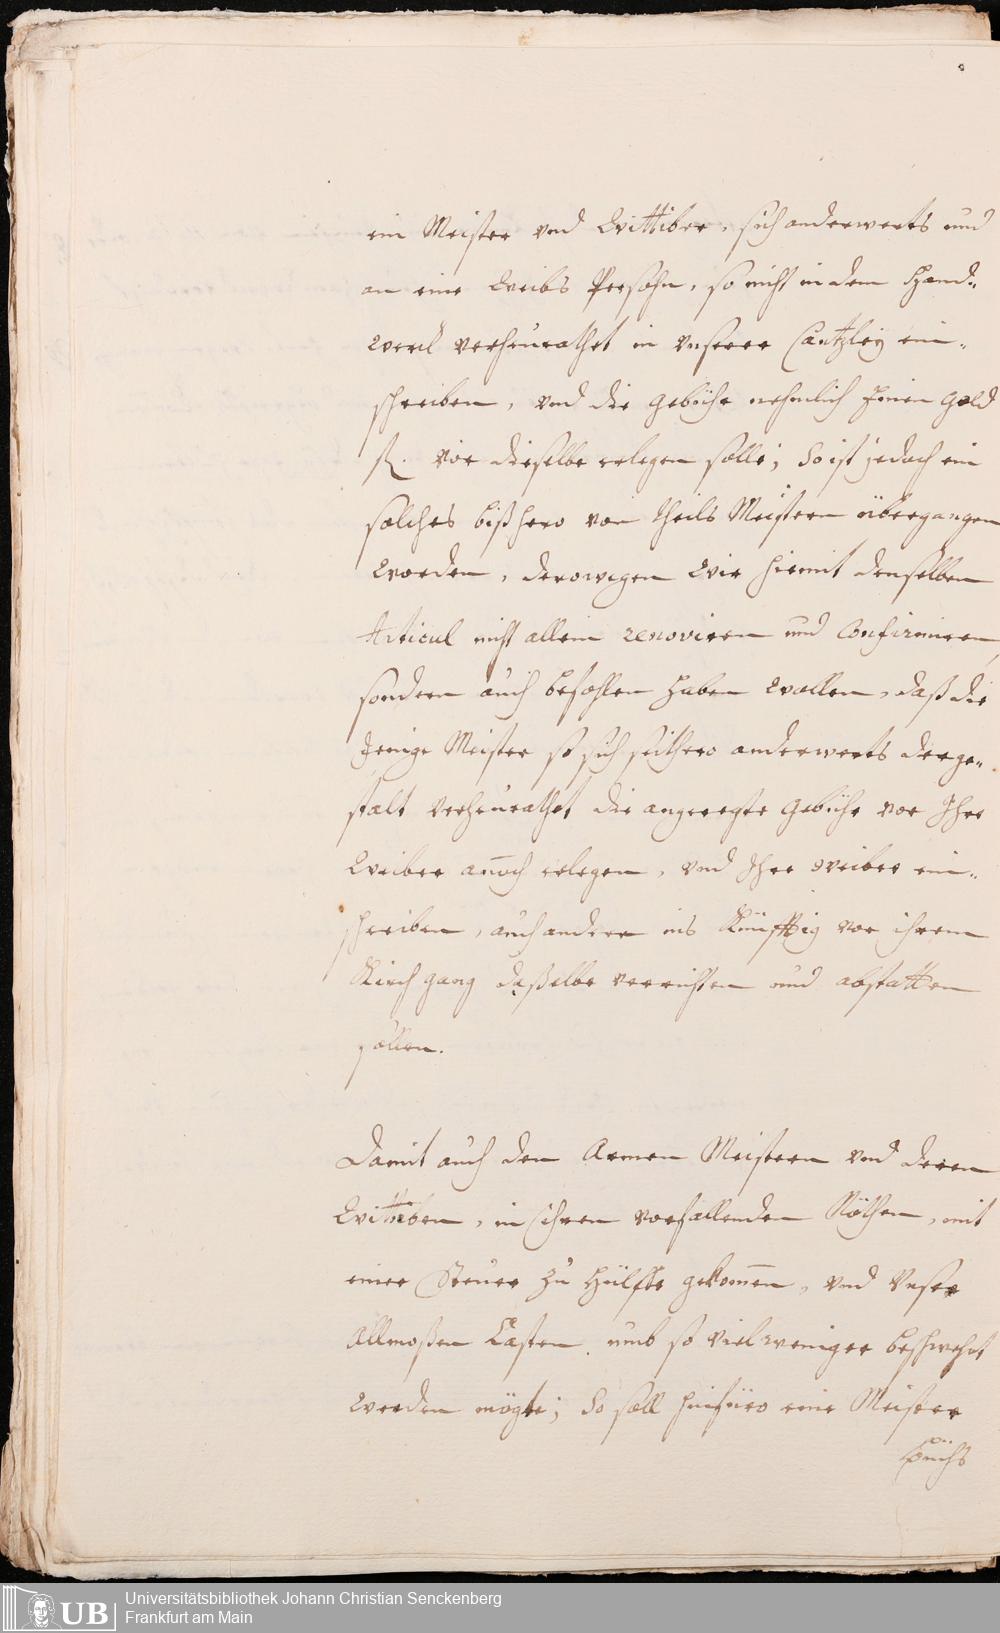 ein Meister vnd Wittiber, sich anderwerts und
an eine Weibs Persohn, so nicht in dem Hand-
werck verheurathet in vnserer Cantzley ein-
schreiben, vnd die gebühr nehmlich Einen gold
fl. vor dieselbe erlegen solle; So ist jedoch ein
solches bißhero von theils Meistern übergangen
worden, derowegen Wir hiermit denselben
Articul nicht allein renoviren und Confirmiren,
sondern auch befohlen haben wollen, daß die
Jenige Meister so sich seithero anderwerts derge-
stalt verheurathet die angeregte gebühr vor Ihre
Weiber annoch erlegen, vnd Ihre weiber ein-
schreiben, auch andere ins Künfftig vor ihrem
Kirchgang daßelbe verrichten und abstatten
sollen.
Damit auch den Armen Meistern vnd deren
Wittiben, in ihren vorfallenden Nöthen, mit
einer Steuer zu Hülffe gekommen, vnd Vnser
Allmoßen Casten umb so viel weniger beschwehrt
werden mögte; So soll hinfüro eine Meister